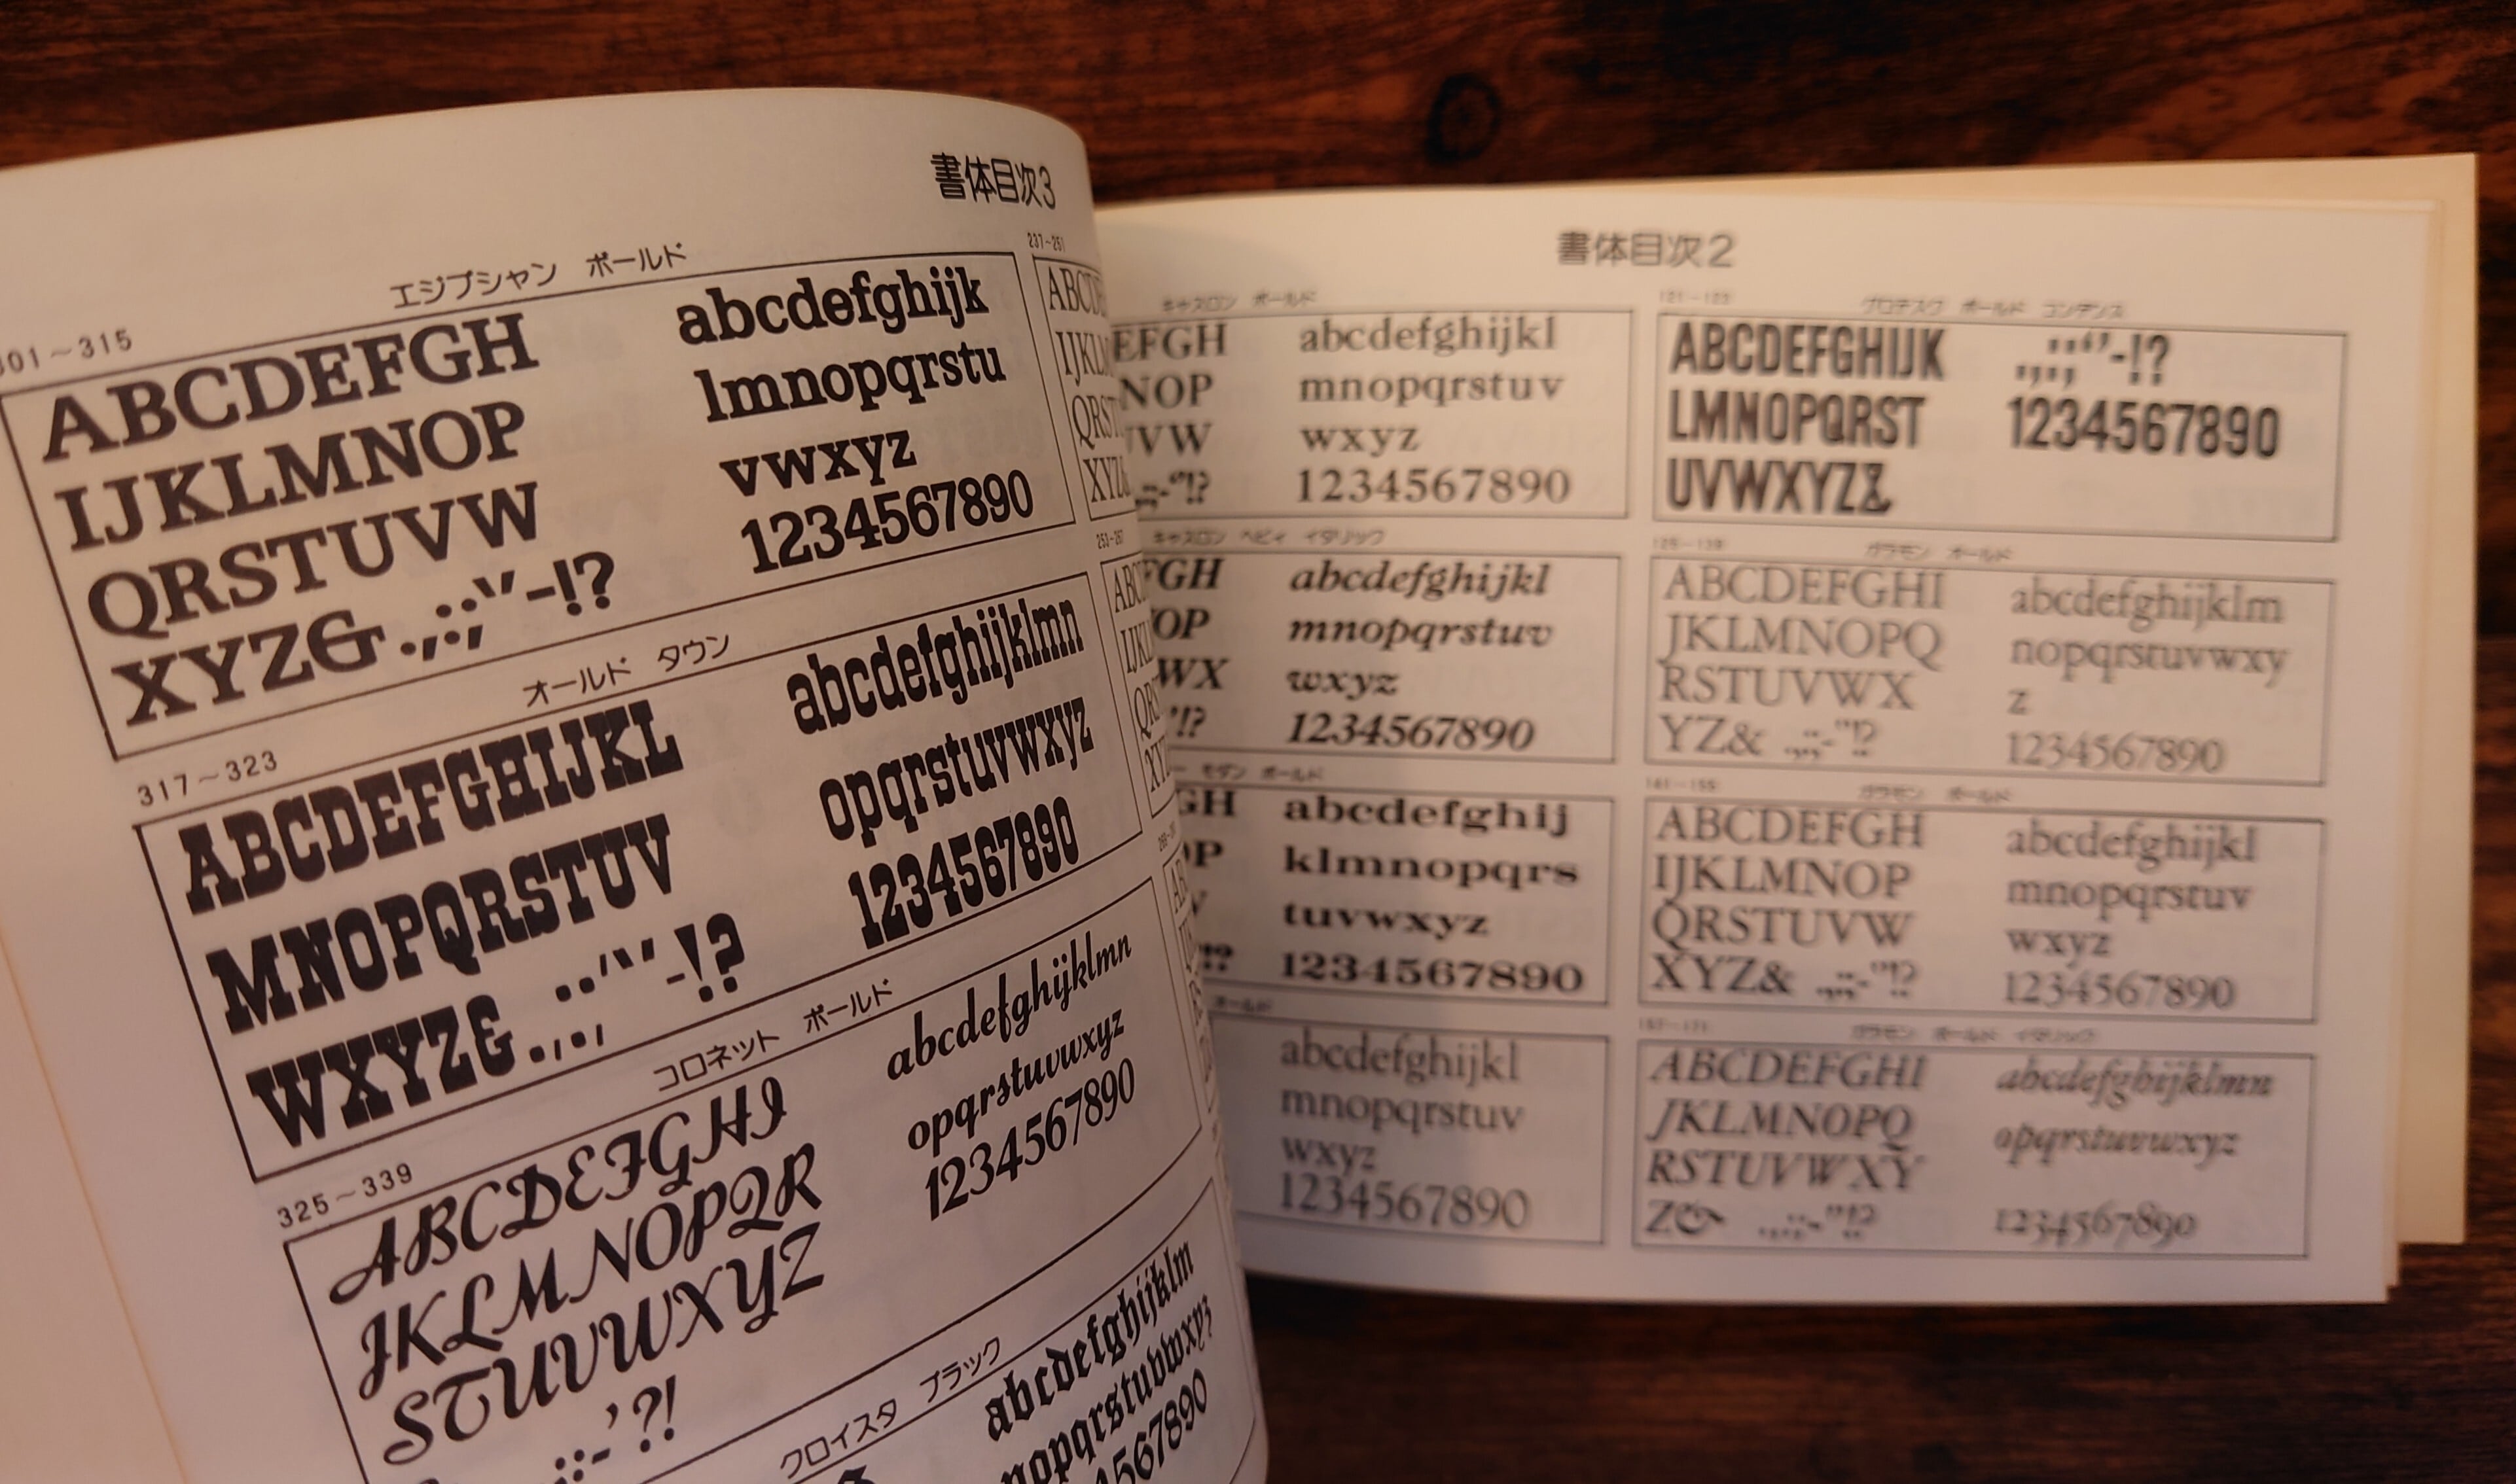 書体目次3
エジプシャン ボールド
01～315
ABCDEFGH
IJKLMNOP
QRSTUVW
XYZ& .,:;‘’-!?
abcdefghijk
lmnopqrstu
vwxyz
1234567890
オールド タウン
317～323
ABCDEFGHIJKL
MNOPQRSTUV
WXYZ& .,:;‘’-!?
abcdefghijklmn
opqrstuvwxyz
1234567890
コロネット ボールド
325～339
ABCDEFGHI
JKLMNOPQR
STUVWXYZ
.,:;-’?!
abcdefghijklmn
opqrstuvwxyz
1234567890
クロイスタ ブラック
abcdefghijklm
nopqrstuvwxyz
4567890
237～251
ABCD
IJKL
QRST
XYZ&
253～267
ABC
IJKL
QRS
XYZ
書体目次2
キャスロン ボールド
EFGH
NOP
UVW
.,:;-‘’!?
abcdefghijkl
mnopqrstuv
wxyz
1234567890
キャスロン ヘビィ イタリック
FGH
OP
WX
’!?
abcdefghijkl
mnopqrstuv
wxyz
1234567890
モダン ボールド
GH
OP
V
abcdefghij
klmnopqrs
tuvwxyz
1234567890
ボールド
abcdefghijkl
mnopqrstuv
wxyz
1234567890
121～123
グロテスク ボールド コンデンス
ABCDEFGHIJK
LMNOPQRST
UVWXYZ&
.,:;‘’-!?
1234567890
125～139
ガラモン ボールド
ABCDEFGHI
JKLMNOPQ
RSTUVWX
YZ& .,:;-‘’!?
abcdefghijklm
nopqrstuvwxy
z
1234567890
141～155
ガラモン ボールド
ABCDEFGH
IJKLMNOP
QRSTUVW
XYZ& .,:;-‘’!?
abcdefghijkl
mnopqrstuv
wxyz
1234567890
157～171
ガラモン ボールド イタリック
ABCDEFGHI
JKLMNOPQ
RSTUVWXY
Z& .,:;-‘’!?
abcdefghijklmn
opqrstuvwxyz
1234567890